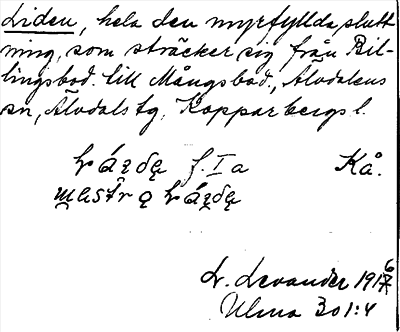 Liden, hela den myrfyllda slutt
ning, som sträcker sig från Bil-
lingsbod. till Mångsbod., Älvdalens
sn, Älvdals tg, Kopparbergs l.
f. Ia Kå.
L. Levander 1916
Ulma 301:4